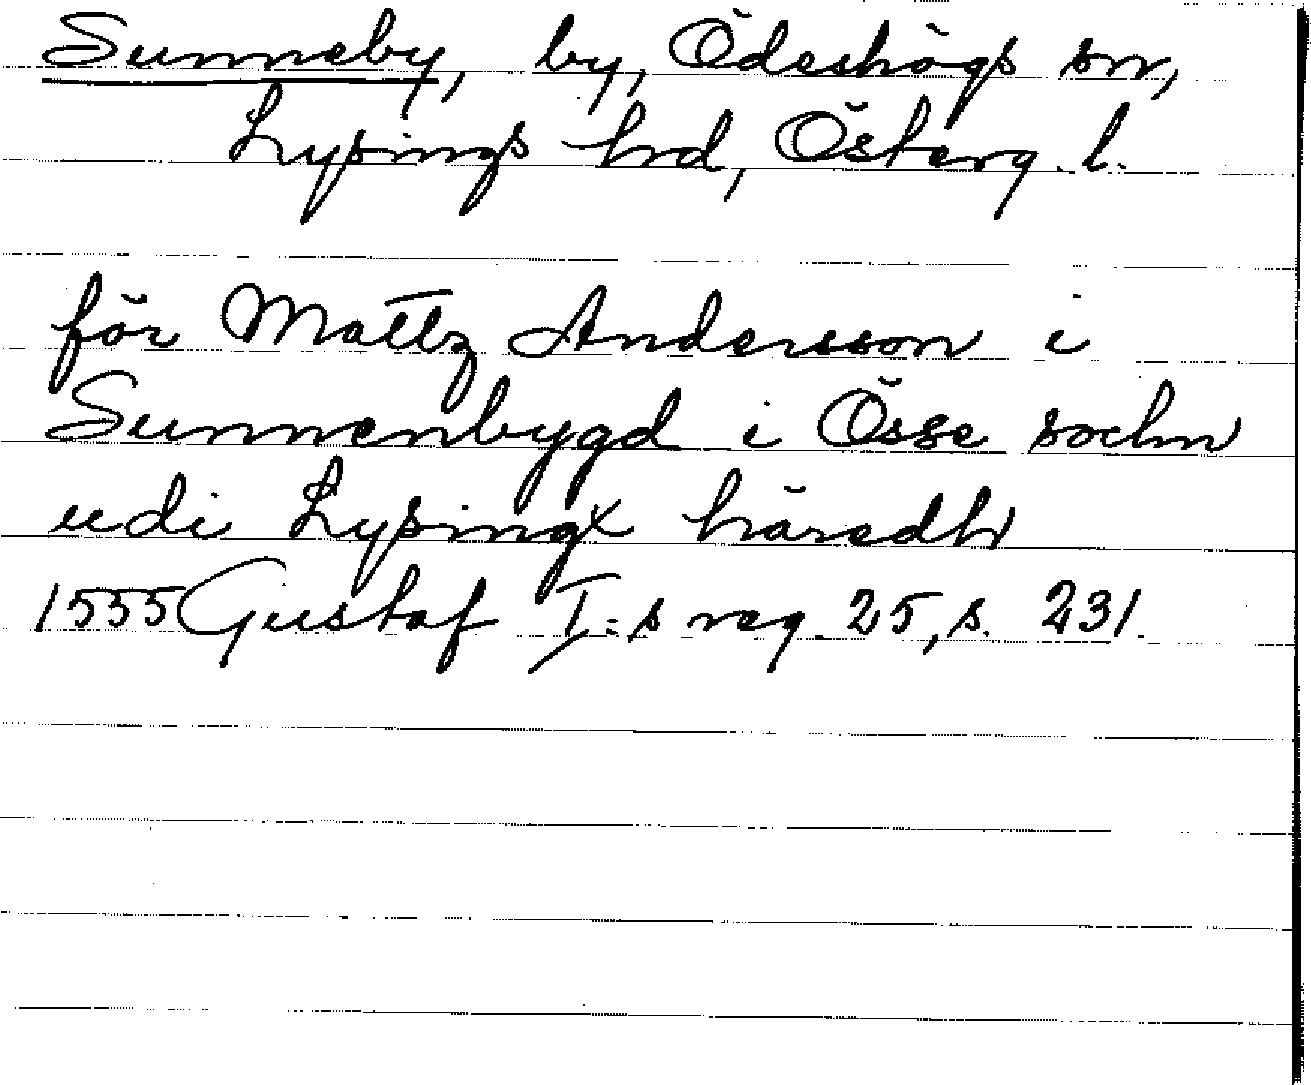 Sunneby, by, Ödeshögs sn,
Lysings hd, Österg. l.
för Mattz Andersson i
Sunnenbygd i Össe sochn
udi Lysingx häredh
1555 Gustaf I:s reg. 25, s. 231.